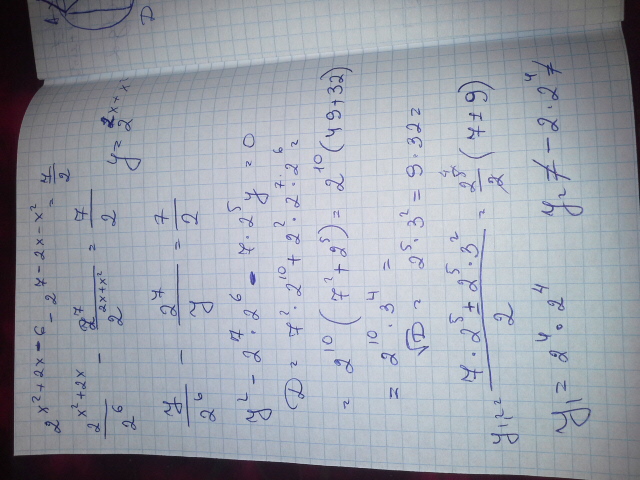 2^(x²+2x-6) - 2^(7-2x-x²) = 7/2
2^(x²+2x)/2^6 - 2^7/2^(2x+x²) = 7/2 y = 2^(2x+x²)
y/2^6 - 2^7/y = 7/2
y² - 2^7·2^6 - 7·2^5 y = 0
D = 7²·2^10 + 2²·2^7·2^6 =
= 2^10 (7² + 2^5) = 2^10 (49+32)
= 2^10·3^4 =
√D = 2^5·3² = 9·32 =
y₁,₂ = (7·2^5 ± 2^5·3²)/2 = 2^5/2 (7±9)
y₁ = 2^4·2^4 y₂ ≠ -2·2^4 ≠
A
D